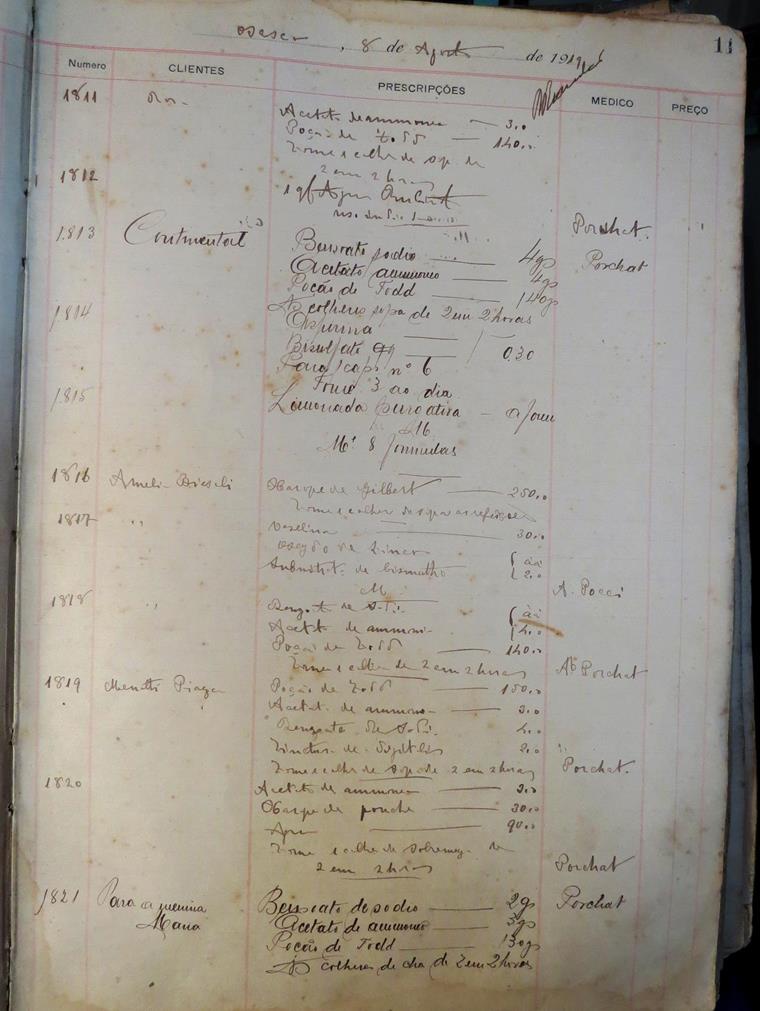 Osasco, 8 de Agosto de 1919
11
Numero CLIENTES PRESCRIPÇÕES MEDICO PREÇO
1811
Acetato de ammonea — 3,0
Poção de Todd — 140,0
Tome 1 colher de sopa de
2 em 2 horas
1812
Porchat.
1813 Continental Bensoato sodio — 4gs Porchat
Acetato ammoneo — 4gs
Poção de Todd — 140gs
As colheres sopa de 2 em 2 horas
1814
Bisulfato — 0.30
Para 1 caps nº 6
Tome 3 ao dia
1815 Limonada Purgativa —
Md. 8
1816 Xarope de Gilbert — 250,0
Tome 1 colher de sopa as refeições
1817 " Vaselina — 30,0
Oxydo de Zinco
Subnitrat. de bismutho āā 2,0
M.
A. Pocci
1818 " Benzoat. de Sodio āā
Acetato de ammoni. 4,0
Poção de Todd — 140,0
Tome 1 colher de 2 em 2 horas
Porchat
1819 Menotti Poção de Todd — 150,0
Acetat. de ammoneo — 3,0
Benzoato de Sodio 4,0
Tinctura de Digitales 2,0
Tome 1 colher de sopa de 2 em 2 horas Porchat.
1820 Acetato de ammoneo — 3,0
Xarope de — 30,0
Agua — 90,0
Tome 1 colher de sobremeza de
2 em 2 horas
Porchat
1821 Para a menina Bensoato de sodio — 2gs Porchat
Maria Acetato de ammoneo — 3gs
Poção de Todd — 130gs
As colheres de cha de 2 em 2 horas